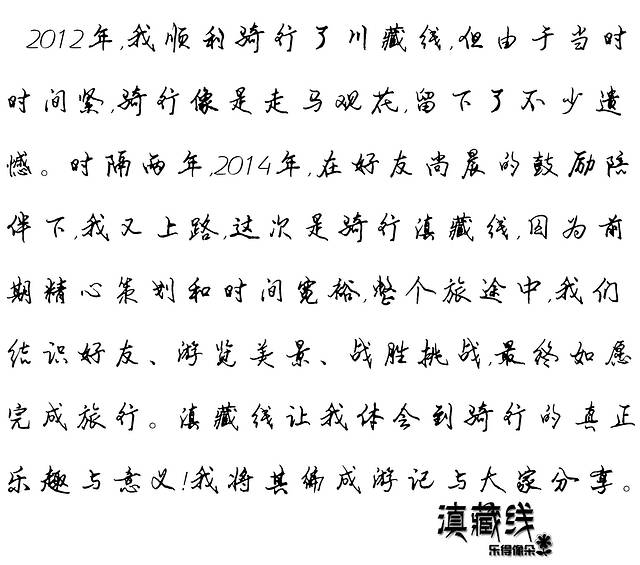 2012年,我顺利骑行了川藏线,但由于当时
时间紧,骑行像是走马观花,留下了不少遗
憾。时隔两年,2014年,在好友尚晨的鼓励陪
伴下,我又上路,这次是骑行滇藏线,因为前
期精心策划和时间宽裕,整个旅途中,我们
结识好友、游览美景、战胜挑战,最终如愿
完成旅行。滇藏线让我体会到骑行的真正
乐趣与意义!我将其编成游记与大家分享。
滇藏线
乐得像朵